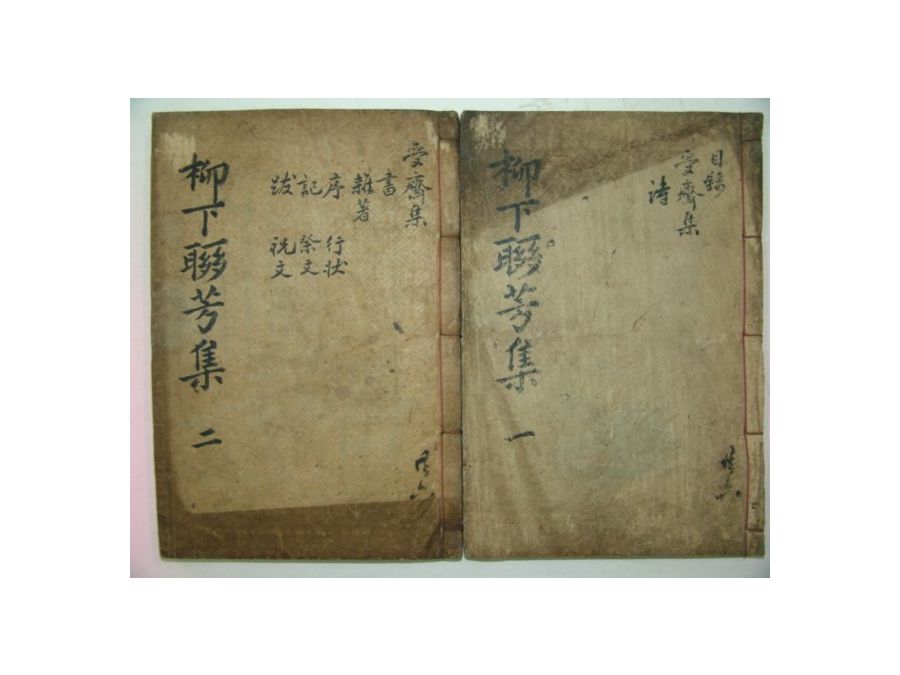 目錄
受齋集
詩
柳下聯芳集 一
共六
受齋集
書
雜著
序 行狀
記 祭文
跋 祝文
柳下聯芳集 二
共六